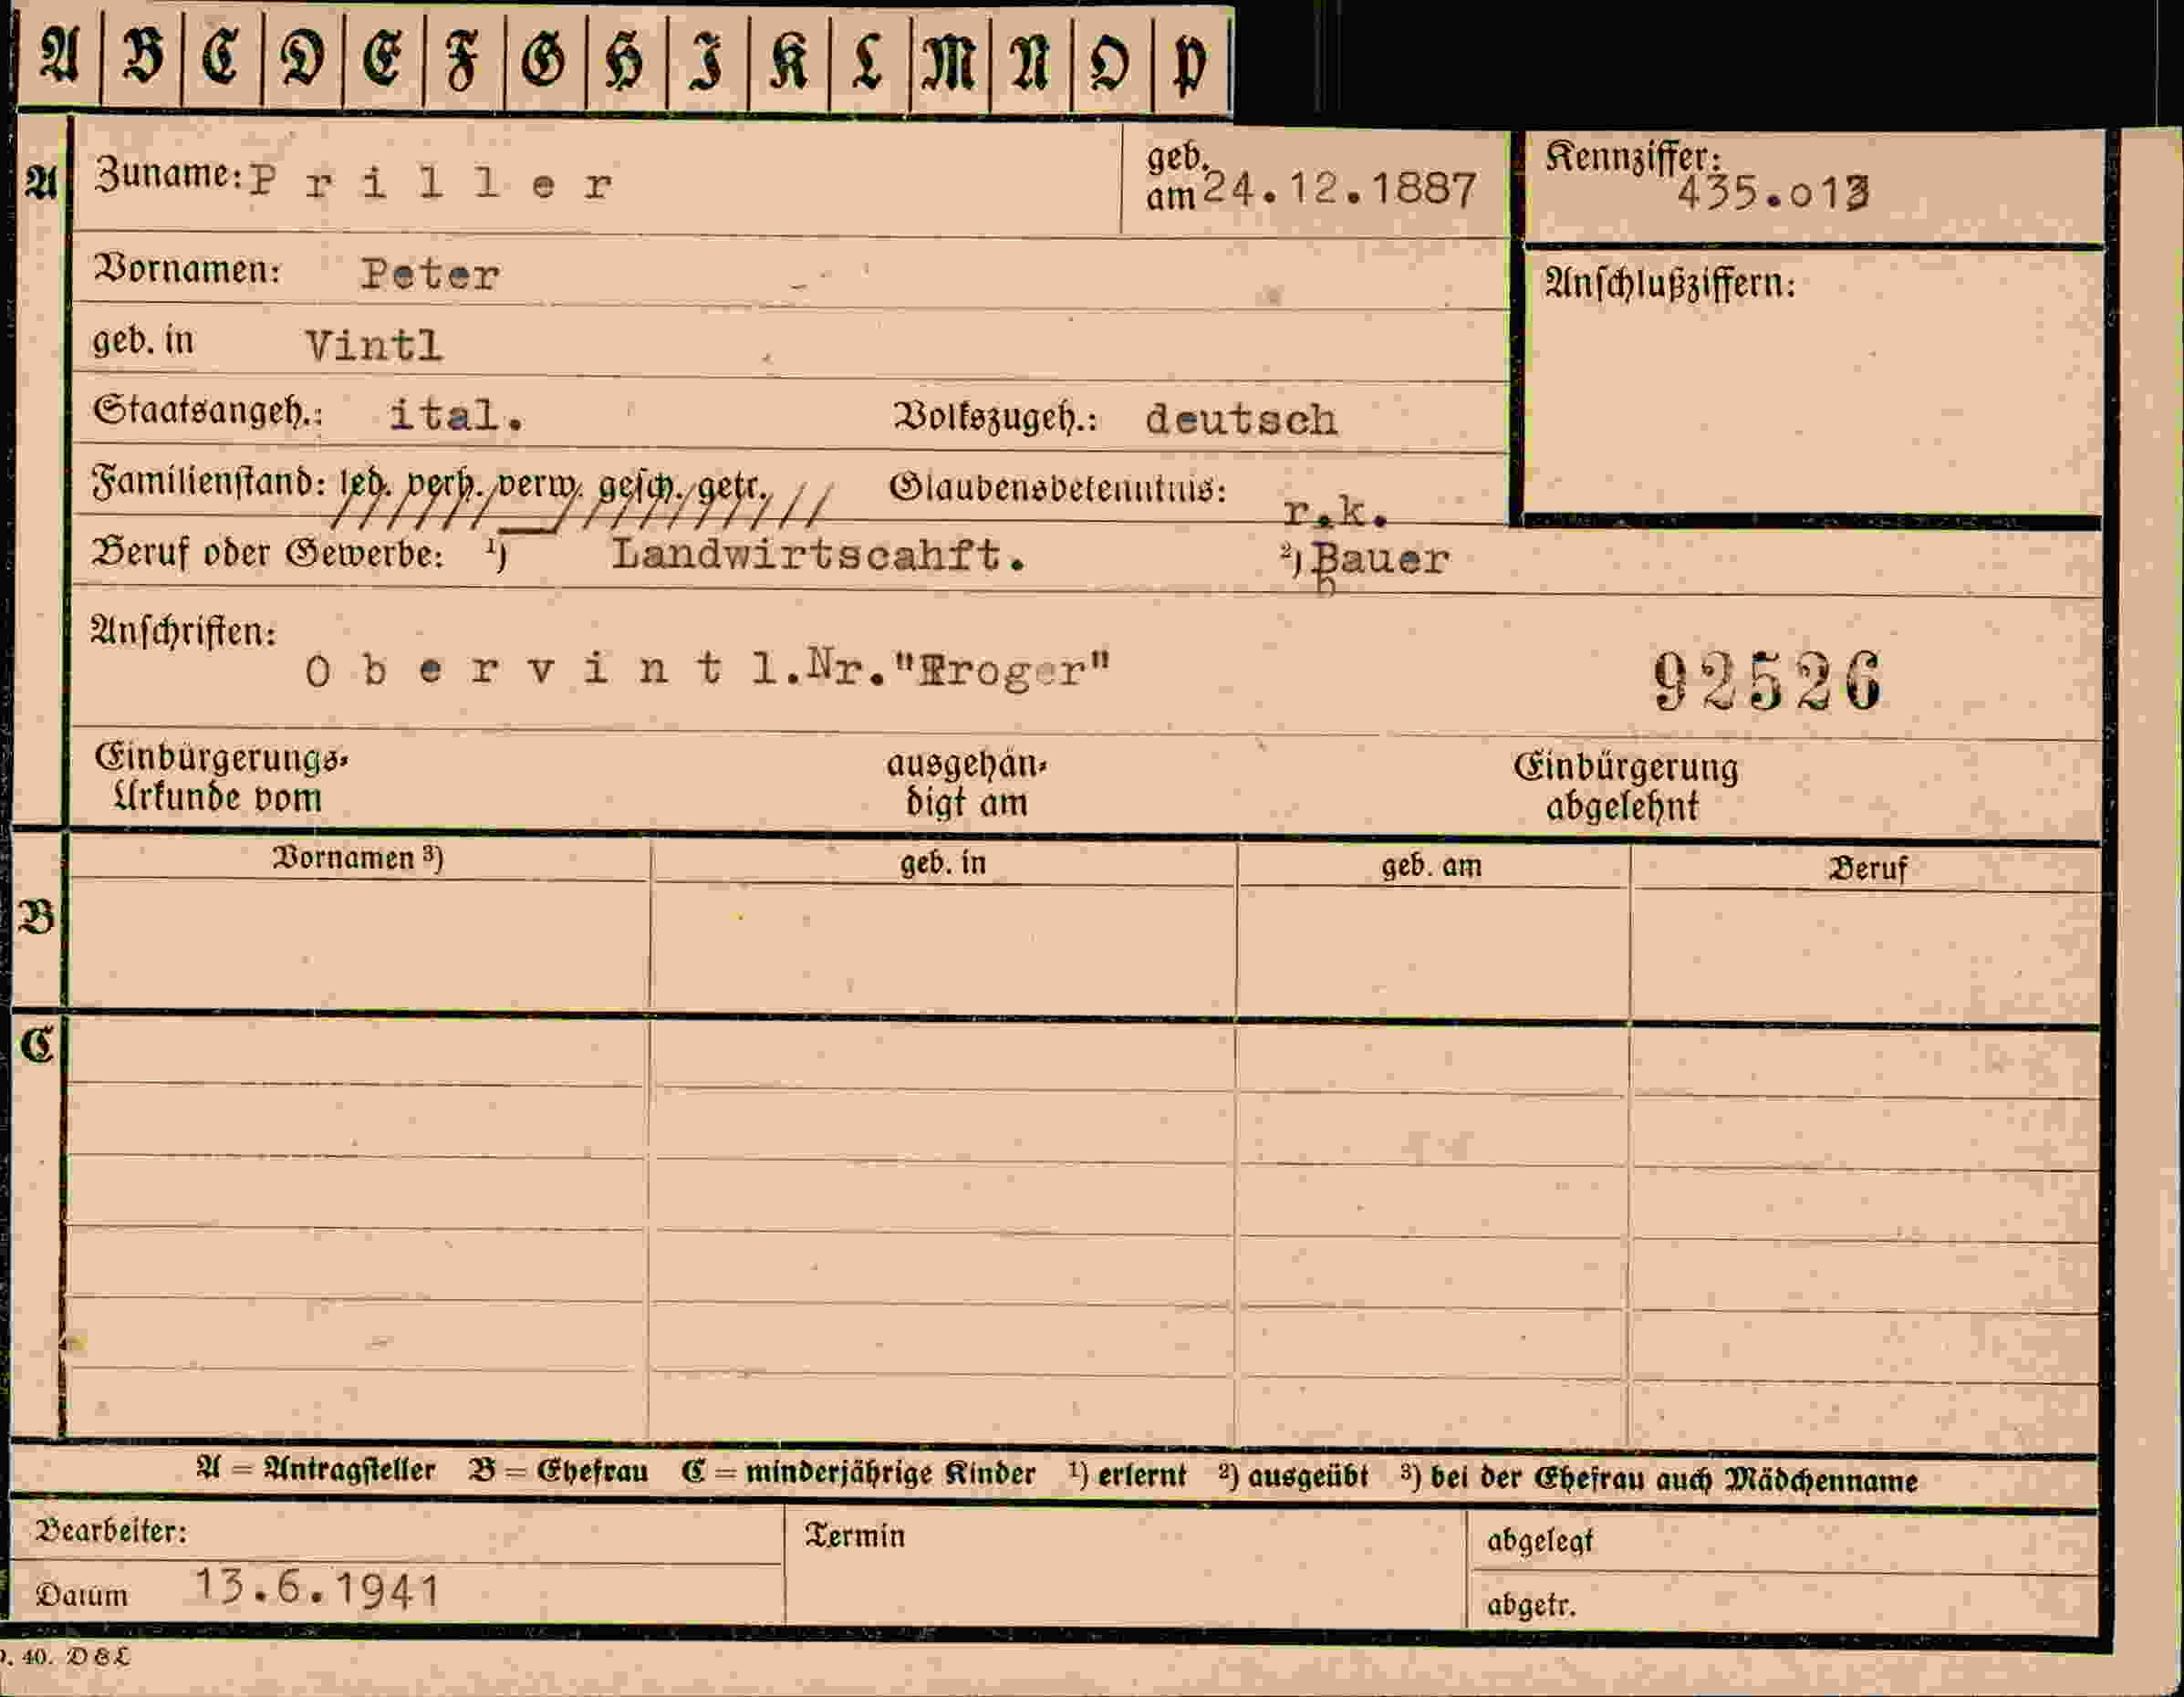 A B C D E F G H I K L M N O P
A Zuname: Priller geb. am 24.12.1887 Kennziffer: 435.013
Vornamen: Peter Anschlußziffern:
geb. in Vintl
Staatsangeh.: ital. Volkszugeh.: deutsch
Familienstand: led. verh. verw. gesch. getr. Glaubensbekenntnis: r.k.
Beruf oder Gewerbe: 1) Landwirtscahft. 2) Bauer
Anschriften:
Obervintl.Nr." 92526
Einbürgerungs- ausgehän- Einbürgerung
Urkunde vom digt am abgelehnt
Vornamen 3) geb. in geb. am Beruf
B
C
A = Antragsteller B = Ehefrau C = minderjährige Kinder 1) erlernt 2) ausgeübt 3) bei der Ehefrau auch Mädchenname
Bearbeiter: Termin abgelegt
Datum 13.6.1941 abgetr.
40. DEL